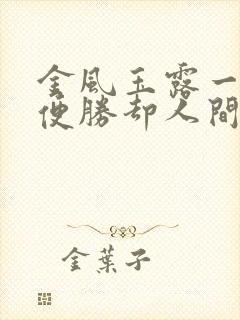 金風玉露一
便勝却人間
金葉子